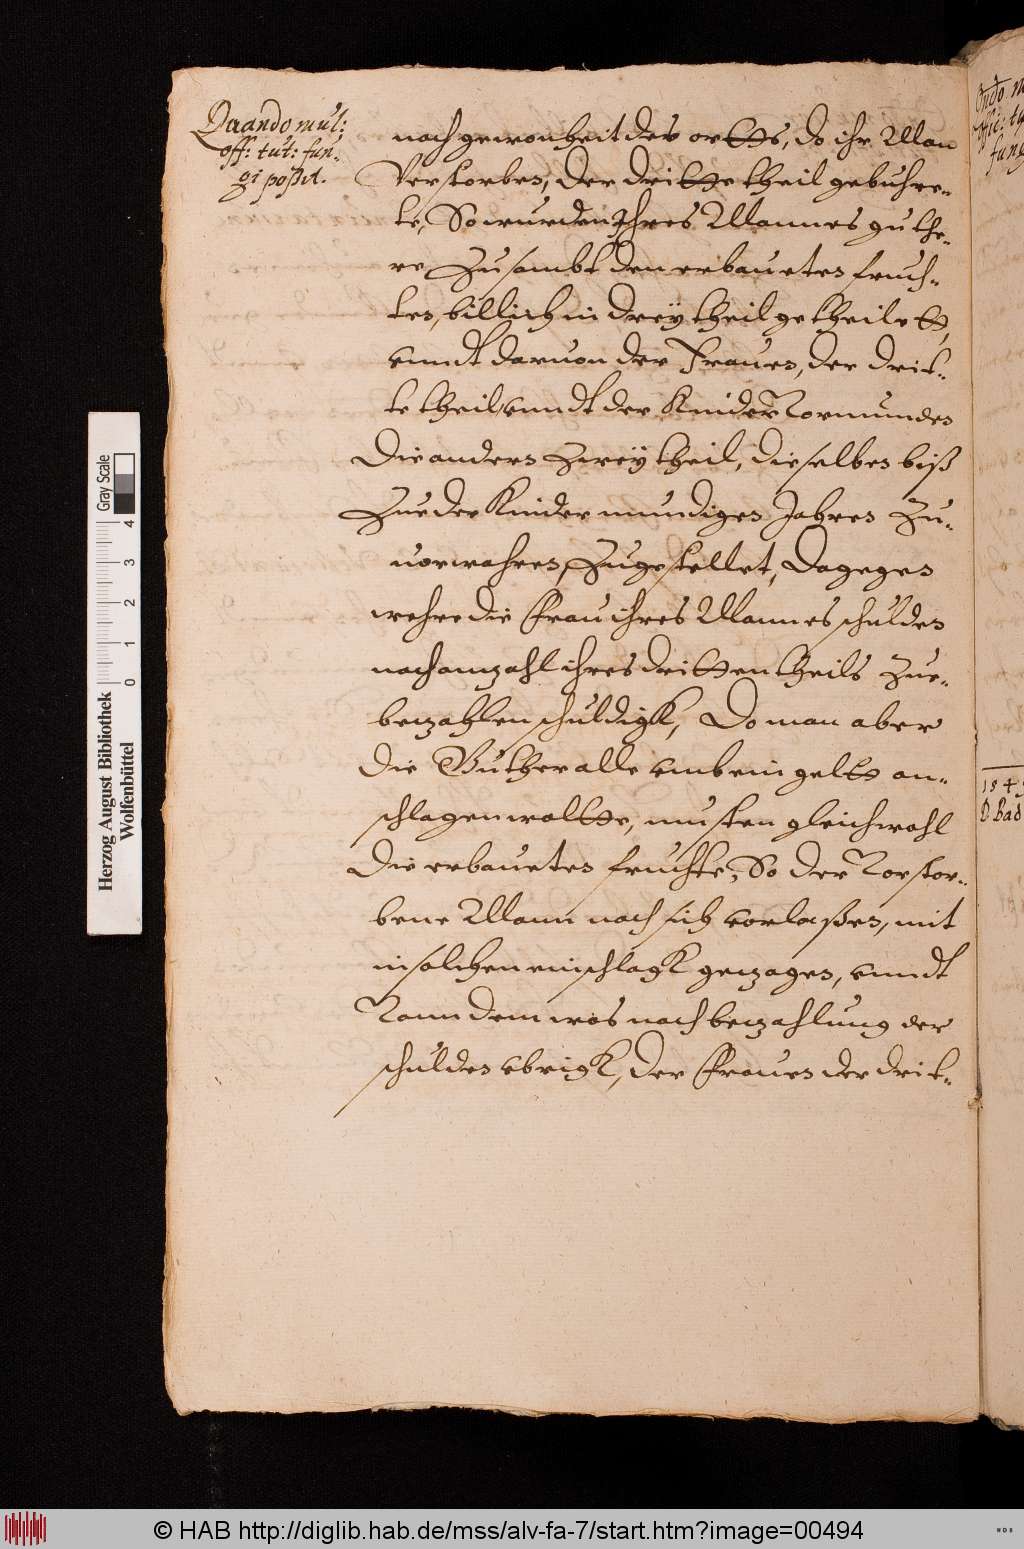 Quando mul:
off: tut: fun-
gi possit.
nach gewonheit des orths, do ihr Man
Verstorben, der dritte theil gebuhre-
te, So wurden Ihres Mannes guthe-
re Zusambt den erbaueten fruch-
ten, billich in dreÿ theil getheilett,
vnndt daruon der Frauen, der drit-
te theil, vnndt der Kinder Vormunden
Die andern Zweÿ theil, dieselben biß
Zue der Kinder mundigen Jahren Zu-
uorwahren, Zugestellet, Dagegen
wehre die Frau ihres Mannes schulden
nach anzahl ihres dritten theils Zue-
bezahlen schuldigk, Do man aber
die Guther alle vmb ein geltt an-
schlagen wollte, musten gleichwohl
Die erbaueten fruchte, So der Vorstor-
bene Mann nach sich vorlaßen, mit
in solchen einschlagk gezogen, vnndt
Vonn dem was nach bezahlung der
schulden vbrigk, der Frauen der drit-
154
D. Bad
Herzog August Bibliothek
Wolfenbüttel
0 1 2 3 4
Gray Scale
© HAB http://diglib.hab.de/mss/alv-fa-7/start.htm?image=00494